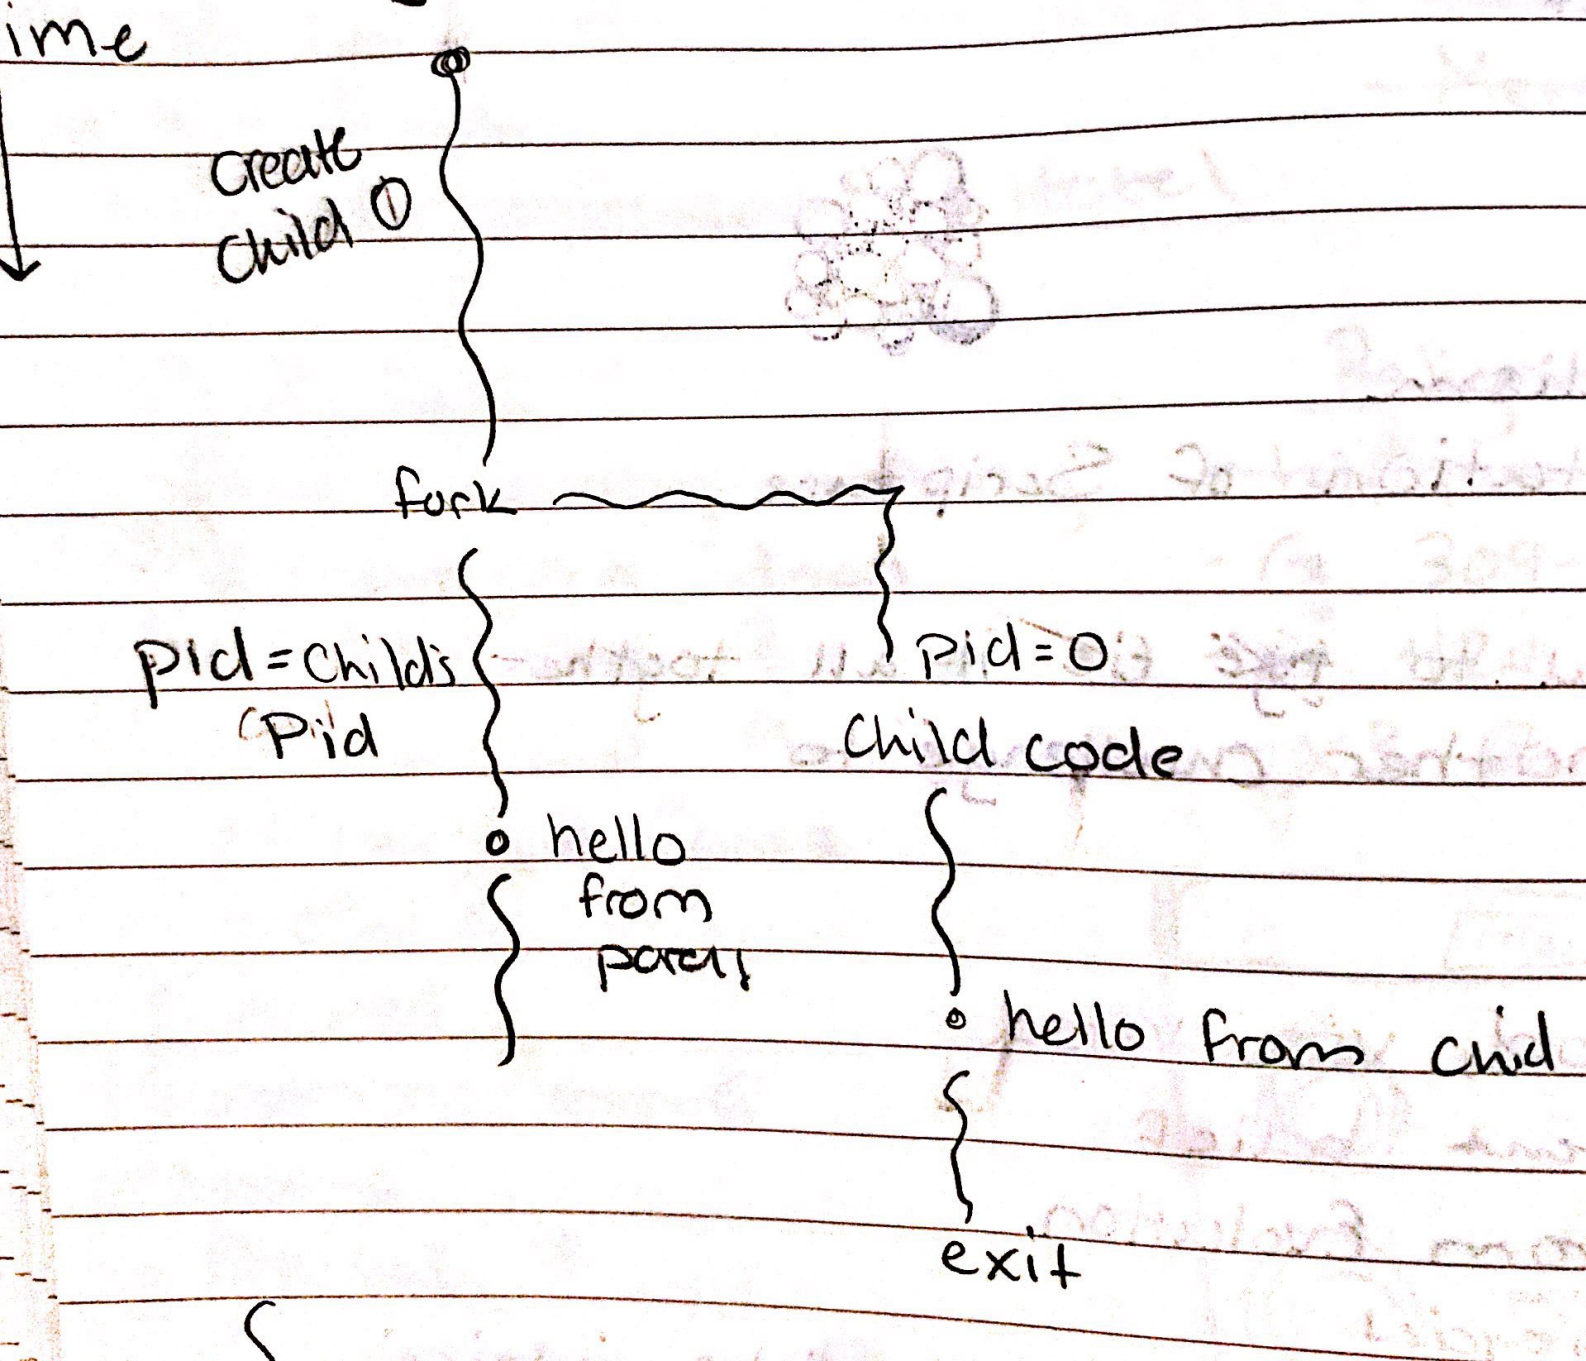 ime
Create
Child ①
fork
pid = Child's
Pid
pid = 0
Child code
hello
from
hello from Chid
exit